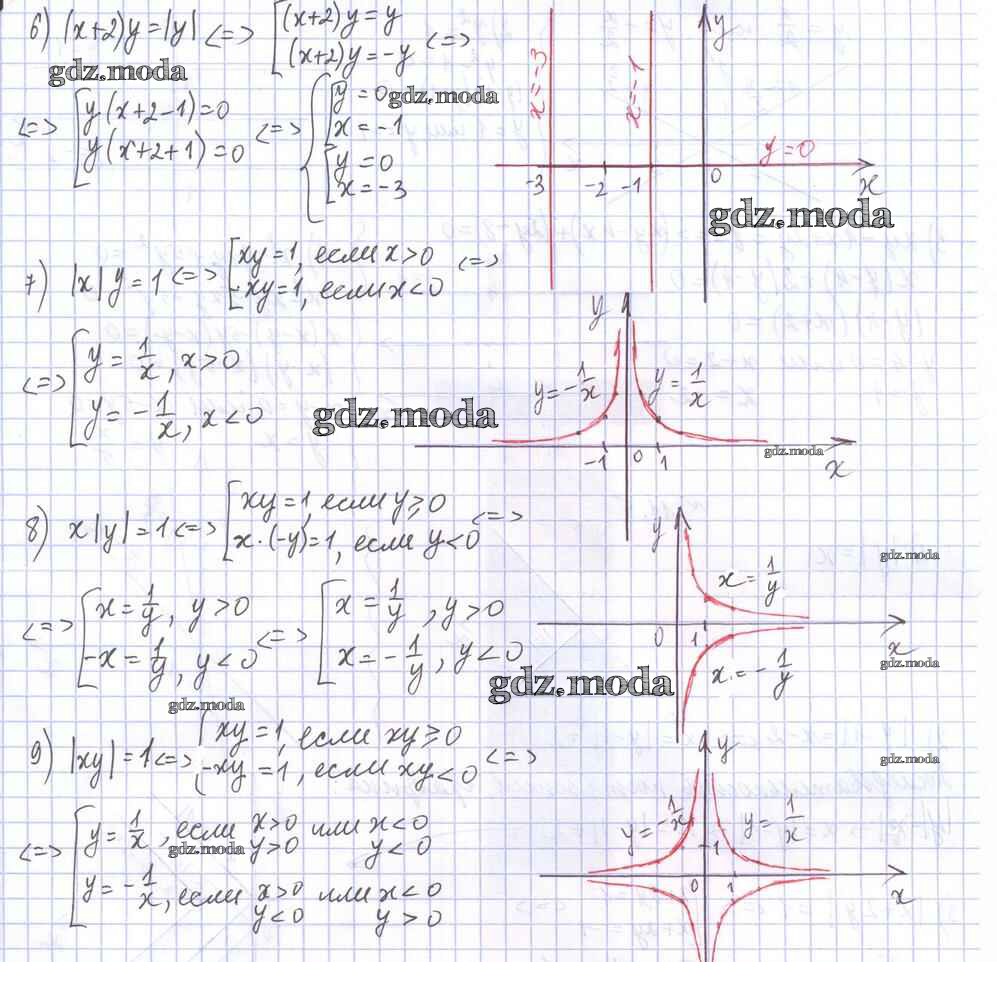 6) (x+2)y=|y| <=> [(x+2)y=y
(x+2)y=-y <=>
gdz.moda
<=> [y(x+2-1)=0
y(x+2+1)=0 <=> {[y=0
x=-1
[y=0
x=-3
gdz.moda
x=-3
x=-1
y
y=0
-3 -2 -1 0 x
gdz.moda
7) |x|y=1 <=> [xy=1, если x>0
-xy=1, если x<0 <=>
<=> [y=1/x, x>0
y=-1/x, x<0
gdz.moda
y
y=-1/x y=1/x
-1 0 1 x
gdz.moda
8) x|y|=1 <=> [xy=1, если y≥0
x·(-y)=1, если y<0 <=>
<=> [x=1/y, y>0
-x=1/y, y<0 <=> [x=1/y, y>0
x=-1/y, y<0
gdz.moda
gdz.moda
y
x=1/y
0 1 x
x=-1/y
gdz.moda
gdz.moda
9) |xy|=1 <=> {xy=1, если xy≥0
-xy=1, если xy<0 <=>
gdz.moda
<=> [y=1/x, если x>0 или x<0
y>0 y<0
gdz.moda
y=-1/x, если x>0 или x<0
y<0 y>0
y
y=-1/x y=1/x
1
0 1 x